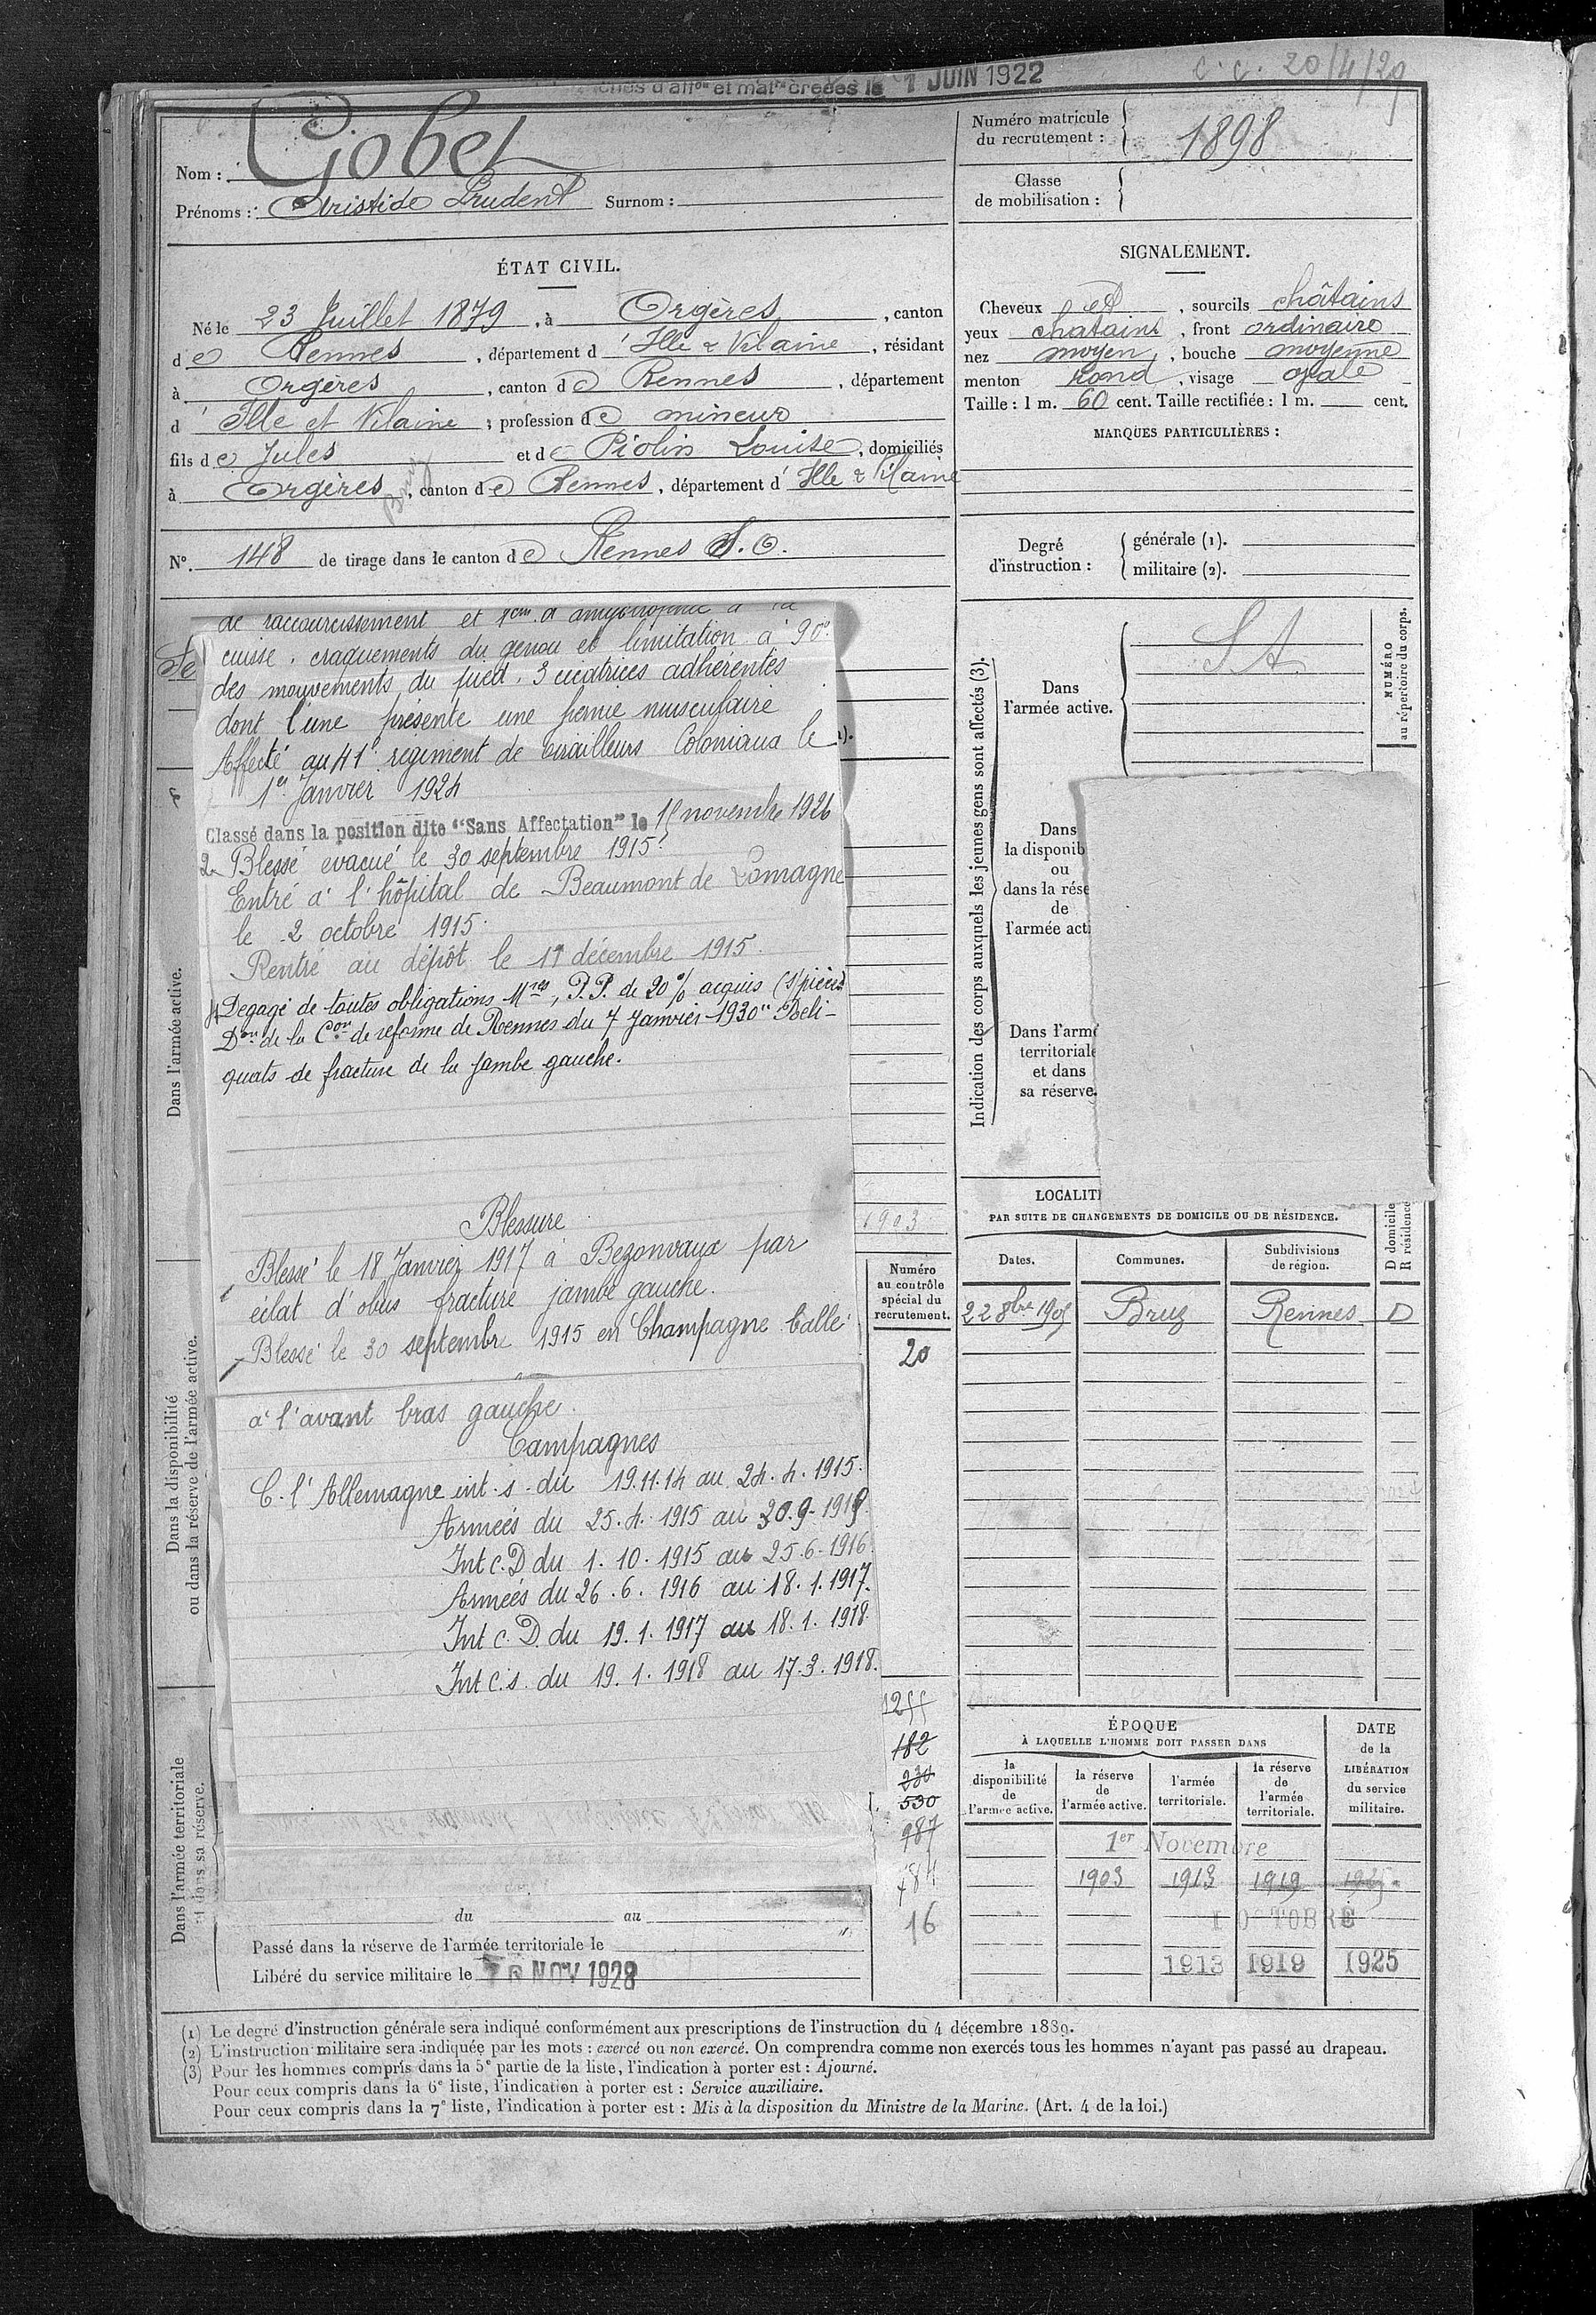 c. c. 20/4/29
et mat^les créées le 1 JUIN 1922
Nom : Gobet
Prénoms : Aristide Prudent Surnom :
Numéro matricule
du recrutement : 1898
Classe
de mobilisation :
ÉTAT CIVIL.
Né le 23 Juillet 1879, à Orgères, canton
de Rennes, département d' Ille & Vilaine, résidant
à Orgères, canton de Rennes, département
d' Ille et Vilaine, profession de mineur
fils de Jules et de Piolin Louise, domiciliés
Bruz
à Orgères, canton de Rennes, département d' Ille & Vilaine
N° 148 de tirage dans le canton de Rennes S. O.
SIGNALEMENT.
Cheveux et, sourcils châtains
yeux chatains, front ordinaire
nez moyen, bouche moyenne
menton rond, visage ovale
Taille : 1 m. 60 cent. Taille rectifiée : 1 m. cent.
MARQUES PARTICULIÈRES :
Degré
d'instruction :
générale (1).
militaire (2).
de raccourcissement et 1cm d'amyotrophie à la
cuisse, craquements du genou et limitation à 90°
des mouvements du pied. 3 cicatrices adhérentes
dont l'une présente une hernie musculaire
Affecté au 41e régiment de tirailleurs Coloniaux le
1er Janvier 1924
Classé dans la position dite "Sans Affectation" le 15 novembre 1926
2 Blessé évacué le 30 septembre 1915.
Entré à l'hôpital de Beaumont de Lomagne
le 2 octobre 1915.
Rentré au dépôt le 17 décembre 1915.
Dégagé de toutes obligations Mres, P.P. de 20 % acquis (s/pièces)
Don de la Con de réforme de Rennes du 7 Janvier 1930 "Reli-
quats de fracture de la jambe gauche.
Blessure
Blessé le 18 Janvier 1917 à Bezonvaux par
éclat d'obus fracture jambe gauche.
Blessé le 30 septembre 1915 en Champagne balle
à l'avant bras gauche.
Campagnes
C. l'Allemagne int. s. du 19.11.14 au 24.4.1915.
Armées du 25.4.1915 au 30.9.1915
Int c. D du 1.10.1915 au 25.6.1916
Armées du 26.6.1916 au 18.1.1917.
Int c. D. du 19.1.1917 au 18.1.1918.
Int C. s. du 19.1.1918 au 17.3.1918.
du au
Passé dans la réserve de l'armée territoriale le
Libéré du service militaire le NOV 1928
Dans l'armée active.
Dans la disponibilité
ou dans la réserve de l'armée active.
Dans l'armée territoriale
et dans sa réserve.
1903
Numéro
au contrôle
spécial du
recrutement.
20
1255
182
230
530
987
784
16
Indication des corps auxquels les jeunes gens sont affectés (3).
Dans
l'armée active.
S A
NUMÉRO
au répertoire du corps.
Dans
la disponib
ou
dans la rése
de
l'armée acti
Dans l'armé
territoriale
et dans
sa réserve.
LOCALIT
PAR SUITE DE CHANGEMENTS DE DOMICILE OU DE RÉSIDENCE.
Dates.
Communes.
Subdivisions
de région.
D domicile
R résidence
22 8bre 1905 Bruz Rennes D
ÉPOQUE
À LAQUELLE L'HOMME DOIT PASSER DANS
la
disponibilité
de
l'armée active.
la réserve
de
l'armée active.
l'armée
territoriale.
la réserve
de
l'armée
territoriale.
DATE
de la
LIBÉRATION
du service
militaire.
1er Novembre
1903 1913 1919 1925
1 OCTOBRE
1913 1919 1925
(1) Le degré d'instruction générale sera indiqué conformément aux prescriptions de l'instruction du 4 décembre 1889.
(2) L'instruction militaire sera indiquée par les mots : exercé ou non exercé. On comprendra comme non exercés tous les hommes n'ayant pas passé au drapeau.
(3) Pour les hommes compris dans la 5e partie de la liste, l'indication à porter est : Ajourné.
Pour ceux compris dans la 6e liste, l'indication à porter est : Service auxiliaire.
Pour ceux compris dans la 7e liste, l'indication à porter est : Mis à la disposition du Ministre de la Marine. (Art. 4 de la loi.)